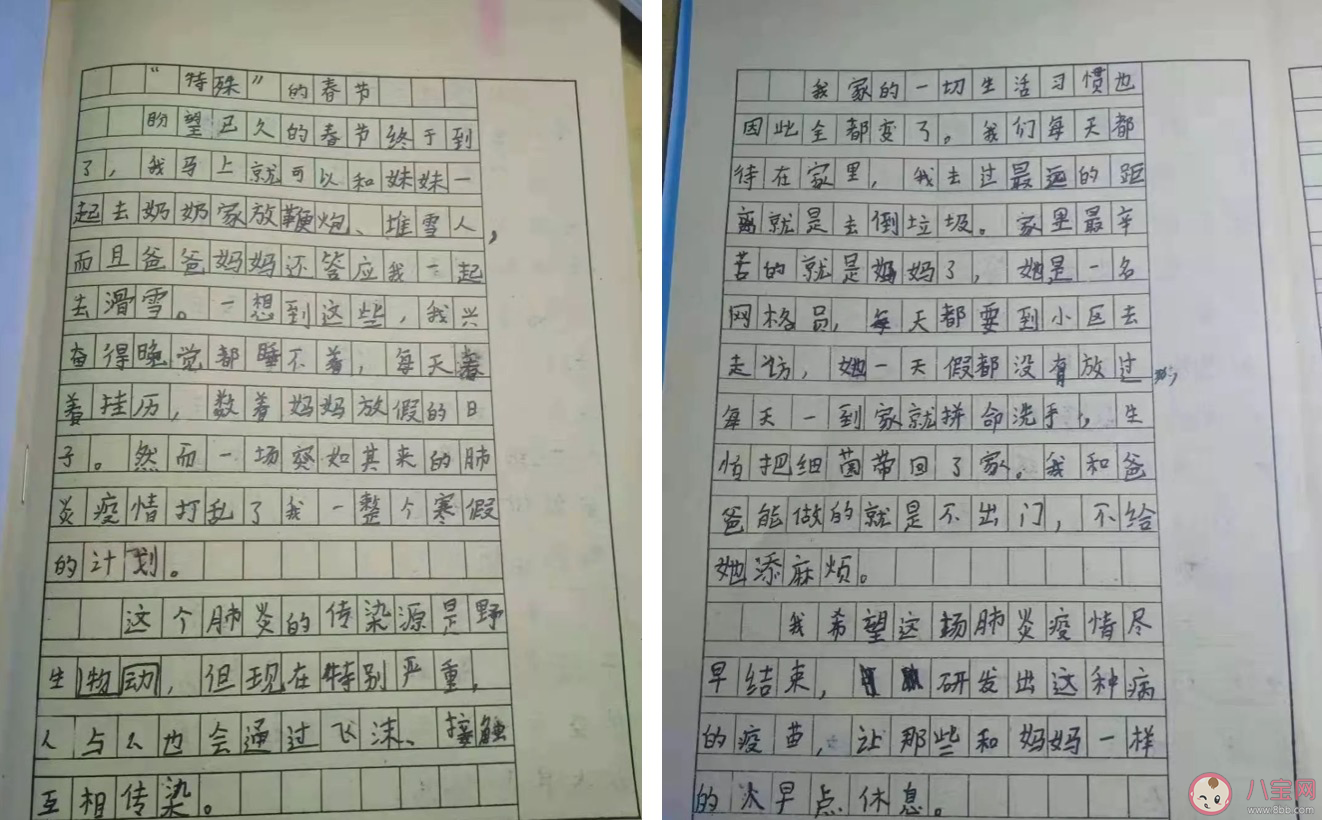 “特殊”的春节
盼望已久的春节终于到
了，我马上就可以和妹妹一
起去奶奶家放鞭炮、堆雪人，
而且爸爸妈妈还答应我一起
去滑雪。一想到这些，我兴
奋得晚觉都睡不着，每天看
着挂历，数着妈妈放假的日
子。然而一场突如其来的肺
炎疫情打乱了我一整个寒假
的计划。
这个肺炎的传染源是野
生物动，但现在特别严重，
人与人也会通过飞沫、接触
互相传染。
我家的一切生活习惯也
因此全都变了。我们每天都
待在家里，我去过最远的距
离就是去倒垃圾。家里最辛
苦的就是妈妈了，她是一名
网格员，每天都要到小区去
走访，她一天假都没有放过，
每天一到家就拼命洗手，生
怕把细菌带回了家。我和爸
爸能做的就是不出门，不给
她添麻烦。
我希望这场肺炎疫情尽
早结束，研发出这种病
的疫苗，让那些和妈妈一样
的人早点休息。
八宝网
www.8bb.com